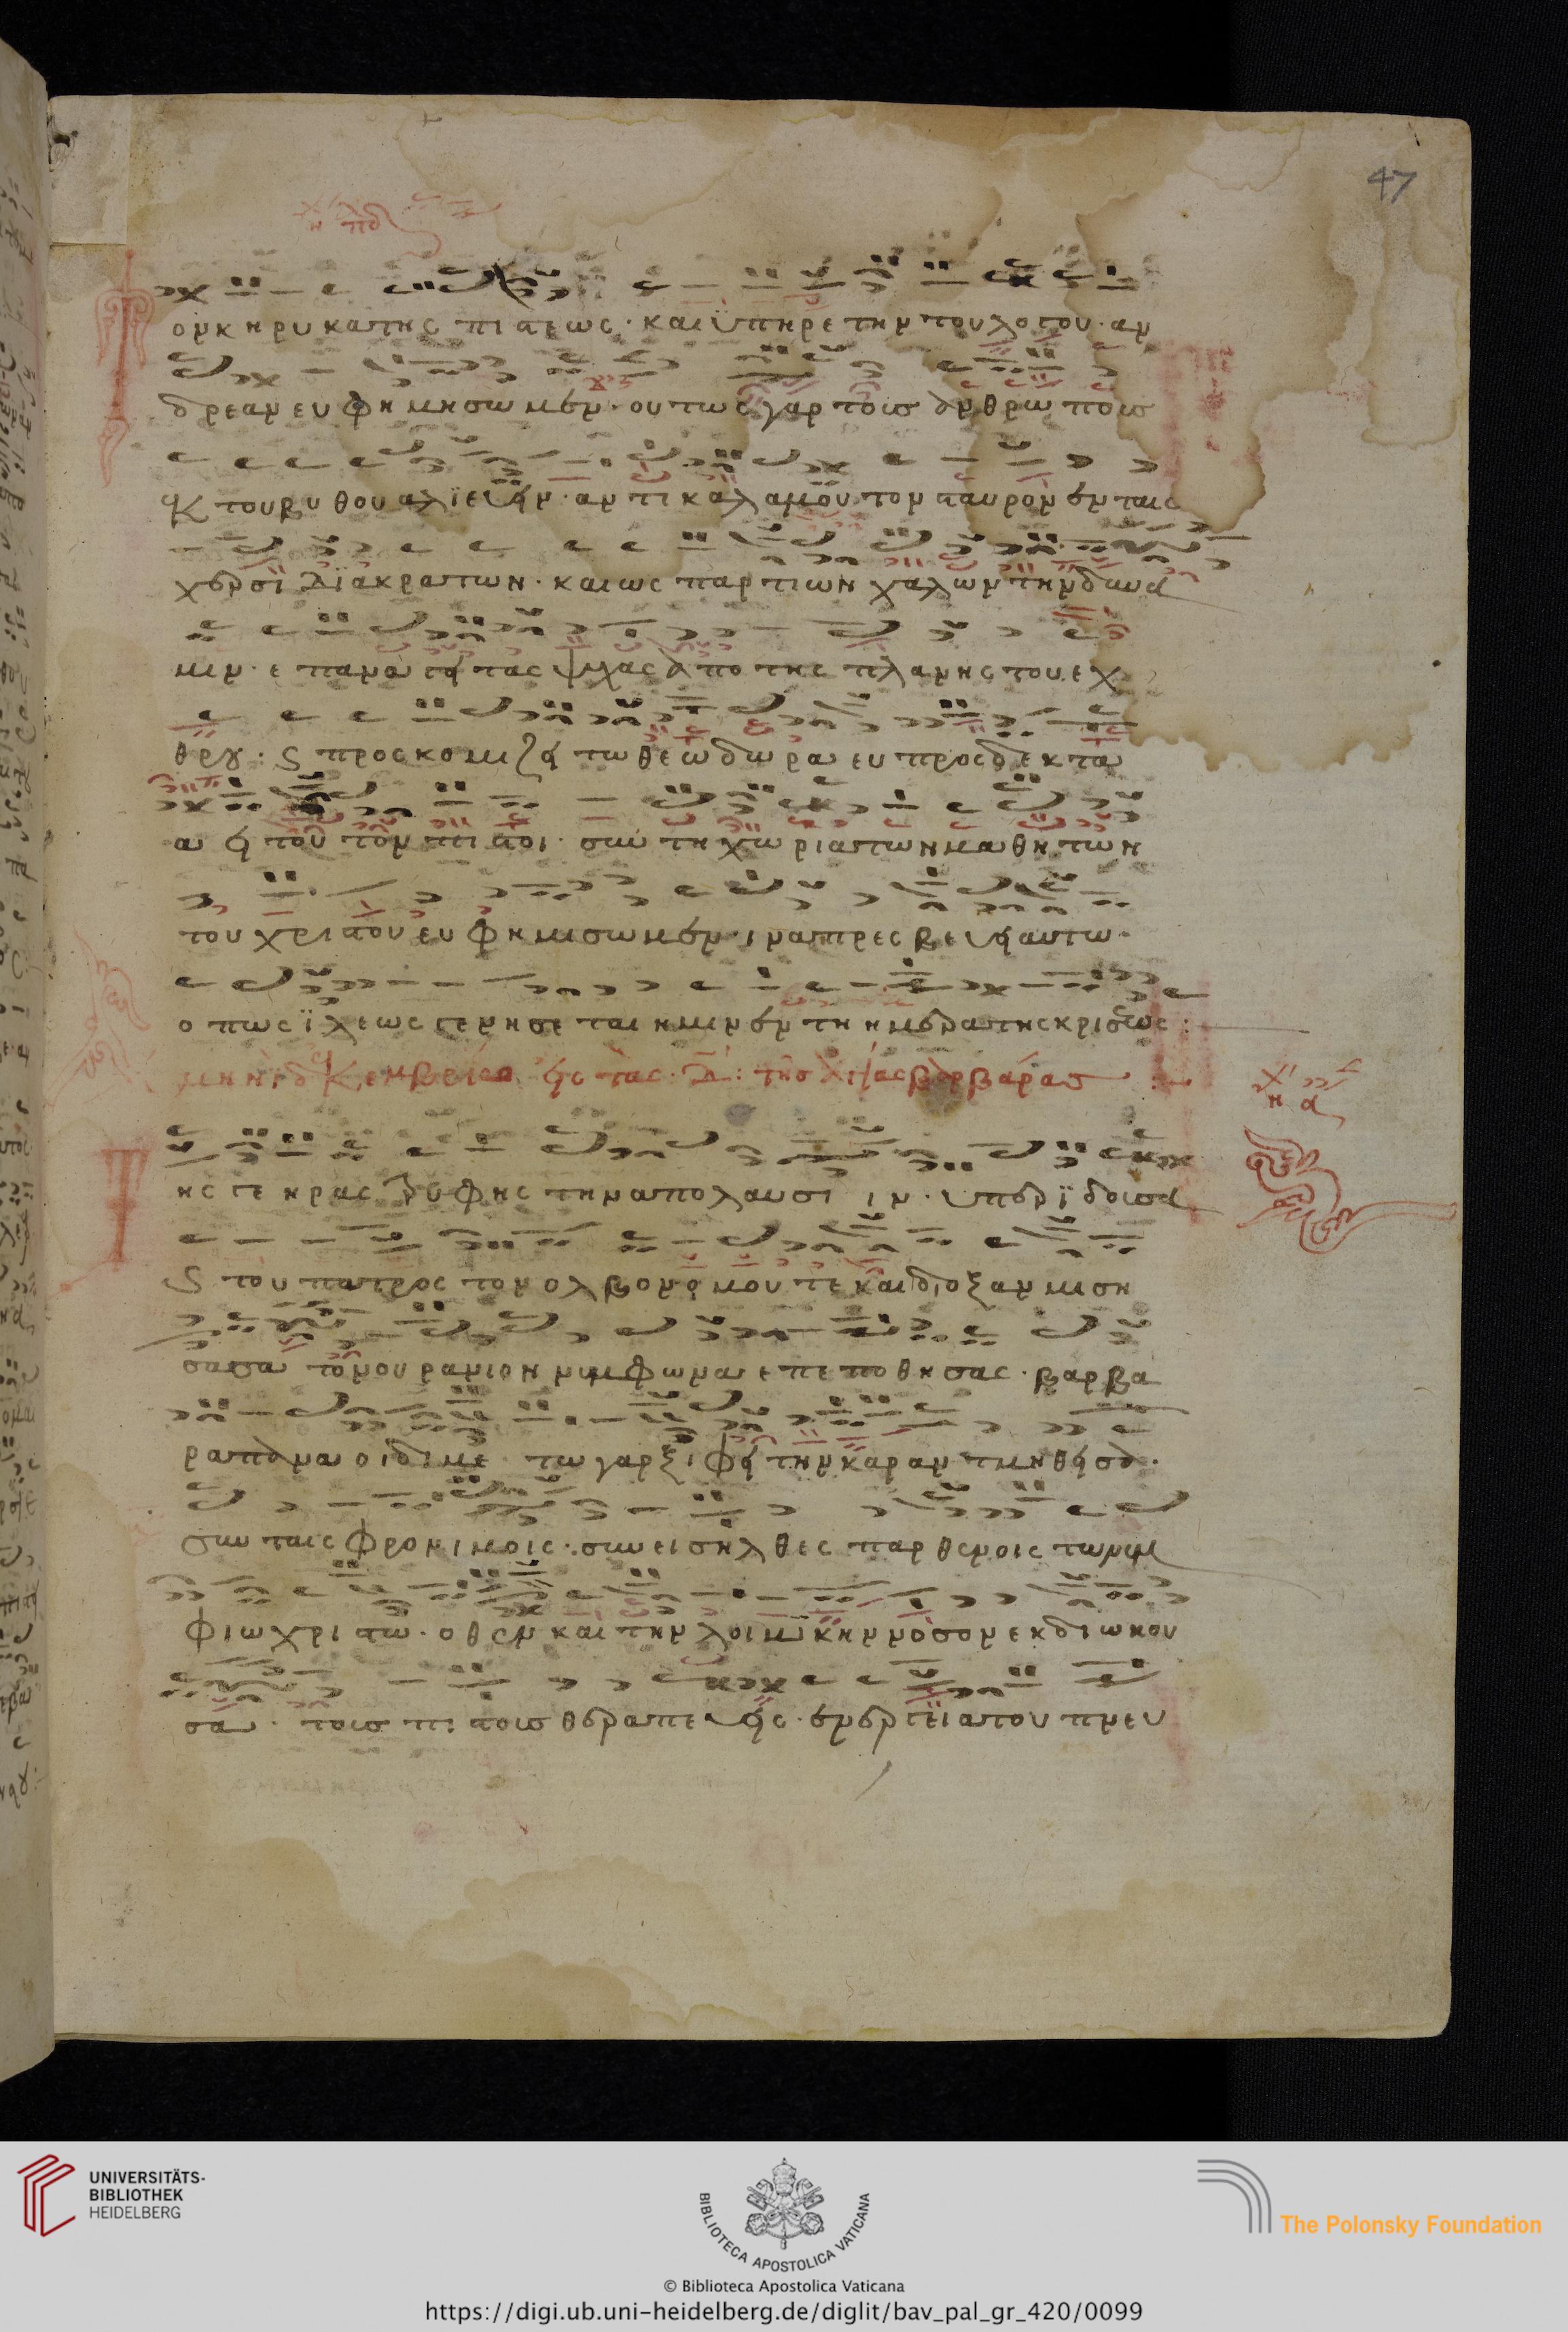 47
ον κηρυκα της πιστεως · και ϋπηρετην του λογου · αν
δρεαν ευφημησωμεν · ουτως γαρ τοις ανθρωποις
εκ του βυθου αλϊευει · αντι καλαμου τον σταυρον εν ταις
χερσι διακρατων · και ως σπαρτιων χαλων την δυνα
μιν · επαναγει τας ψυχας απο της πλανης του εχ
θρου : ϛ προσκομιζει τω θεω δωρα ευπροσδεκτα
αει τουτον πιστοι · συν τη χωρια των μαθητων
του χριστου ευφημισωμεν · ινα πρεσβευει αυτω ·
οπως ϊλεως γενησεται ημιν εν τη ημερα της κρισεως :
μηνι δεκεμβριω εις τας · Δ : της αγιας βαρβαρας
Τ
ης γε ηρας τρυφης την απολαυσι ιν · υπεριδουσα
ϛ του πατρος τον ολβον ομου τε και δοξαν μιση
σασα τον ουρανιον νυμφωνα επεποθησας · βαρβα
ρα πανα οιδιμε · τω γαρ ξιφει την καραν τμηθεισα ·
συν ταις φρονιμοις · συνεισηλθες παρθενοις τω νυμ
φιω χριστω · οθεν και την λοιμικην νοσον εκδιωκου
σα · τοις πιστοις θεραπευεις · ενεργεια του πνευ
χ
UNIVERSITÄTS-
BIBLIOTHEK
HEIDELBERG
BIBLIOTECA APOSTOLICA VATICANA
The Polonsky Foundation
© Biblioteca Apostolica Vaticana
https://digi.ub.uni-heidelberg.de/diglit/bav_pal_gr_420/0099